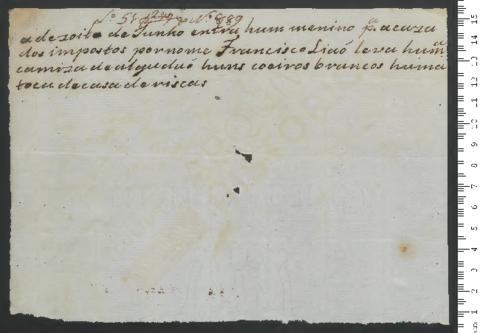 a dezoito de Junho entra hum menino pª a caza
dos impostos por nome Francisco Liaó leva huã
camiza de algudaó huns coeiros brancos huma
toca de casa de riscas